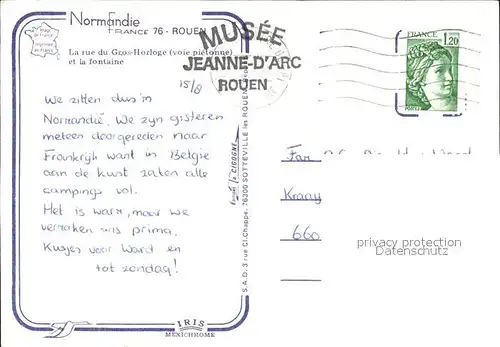 Normandie
FRANCE 76 - ROUEN
La rue du Gros-Horloge (voie piétonne)
et la fontaine
MUSÉE
JEANNE-D'ARC
ROUEN
FRANCE
1,20
15/8
We zitten dus in
Normandië. We zyn gisteren
meteen doorgereden naar
Frankrijk want in België
aan de kust zaten alle
campings vol.
Het is warm, maar we
vermaken ons prima.
Kusjes voor Ward en
tot zondag!
S.A.D. 3 rue Cl. Chappe. 76300 SOTTEVILLE les ROUEN
la CIGOGNE
Fam
Kraay
660
privacy protection
Datenschutz
IRIS
MEXICHROME